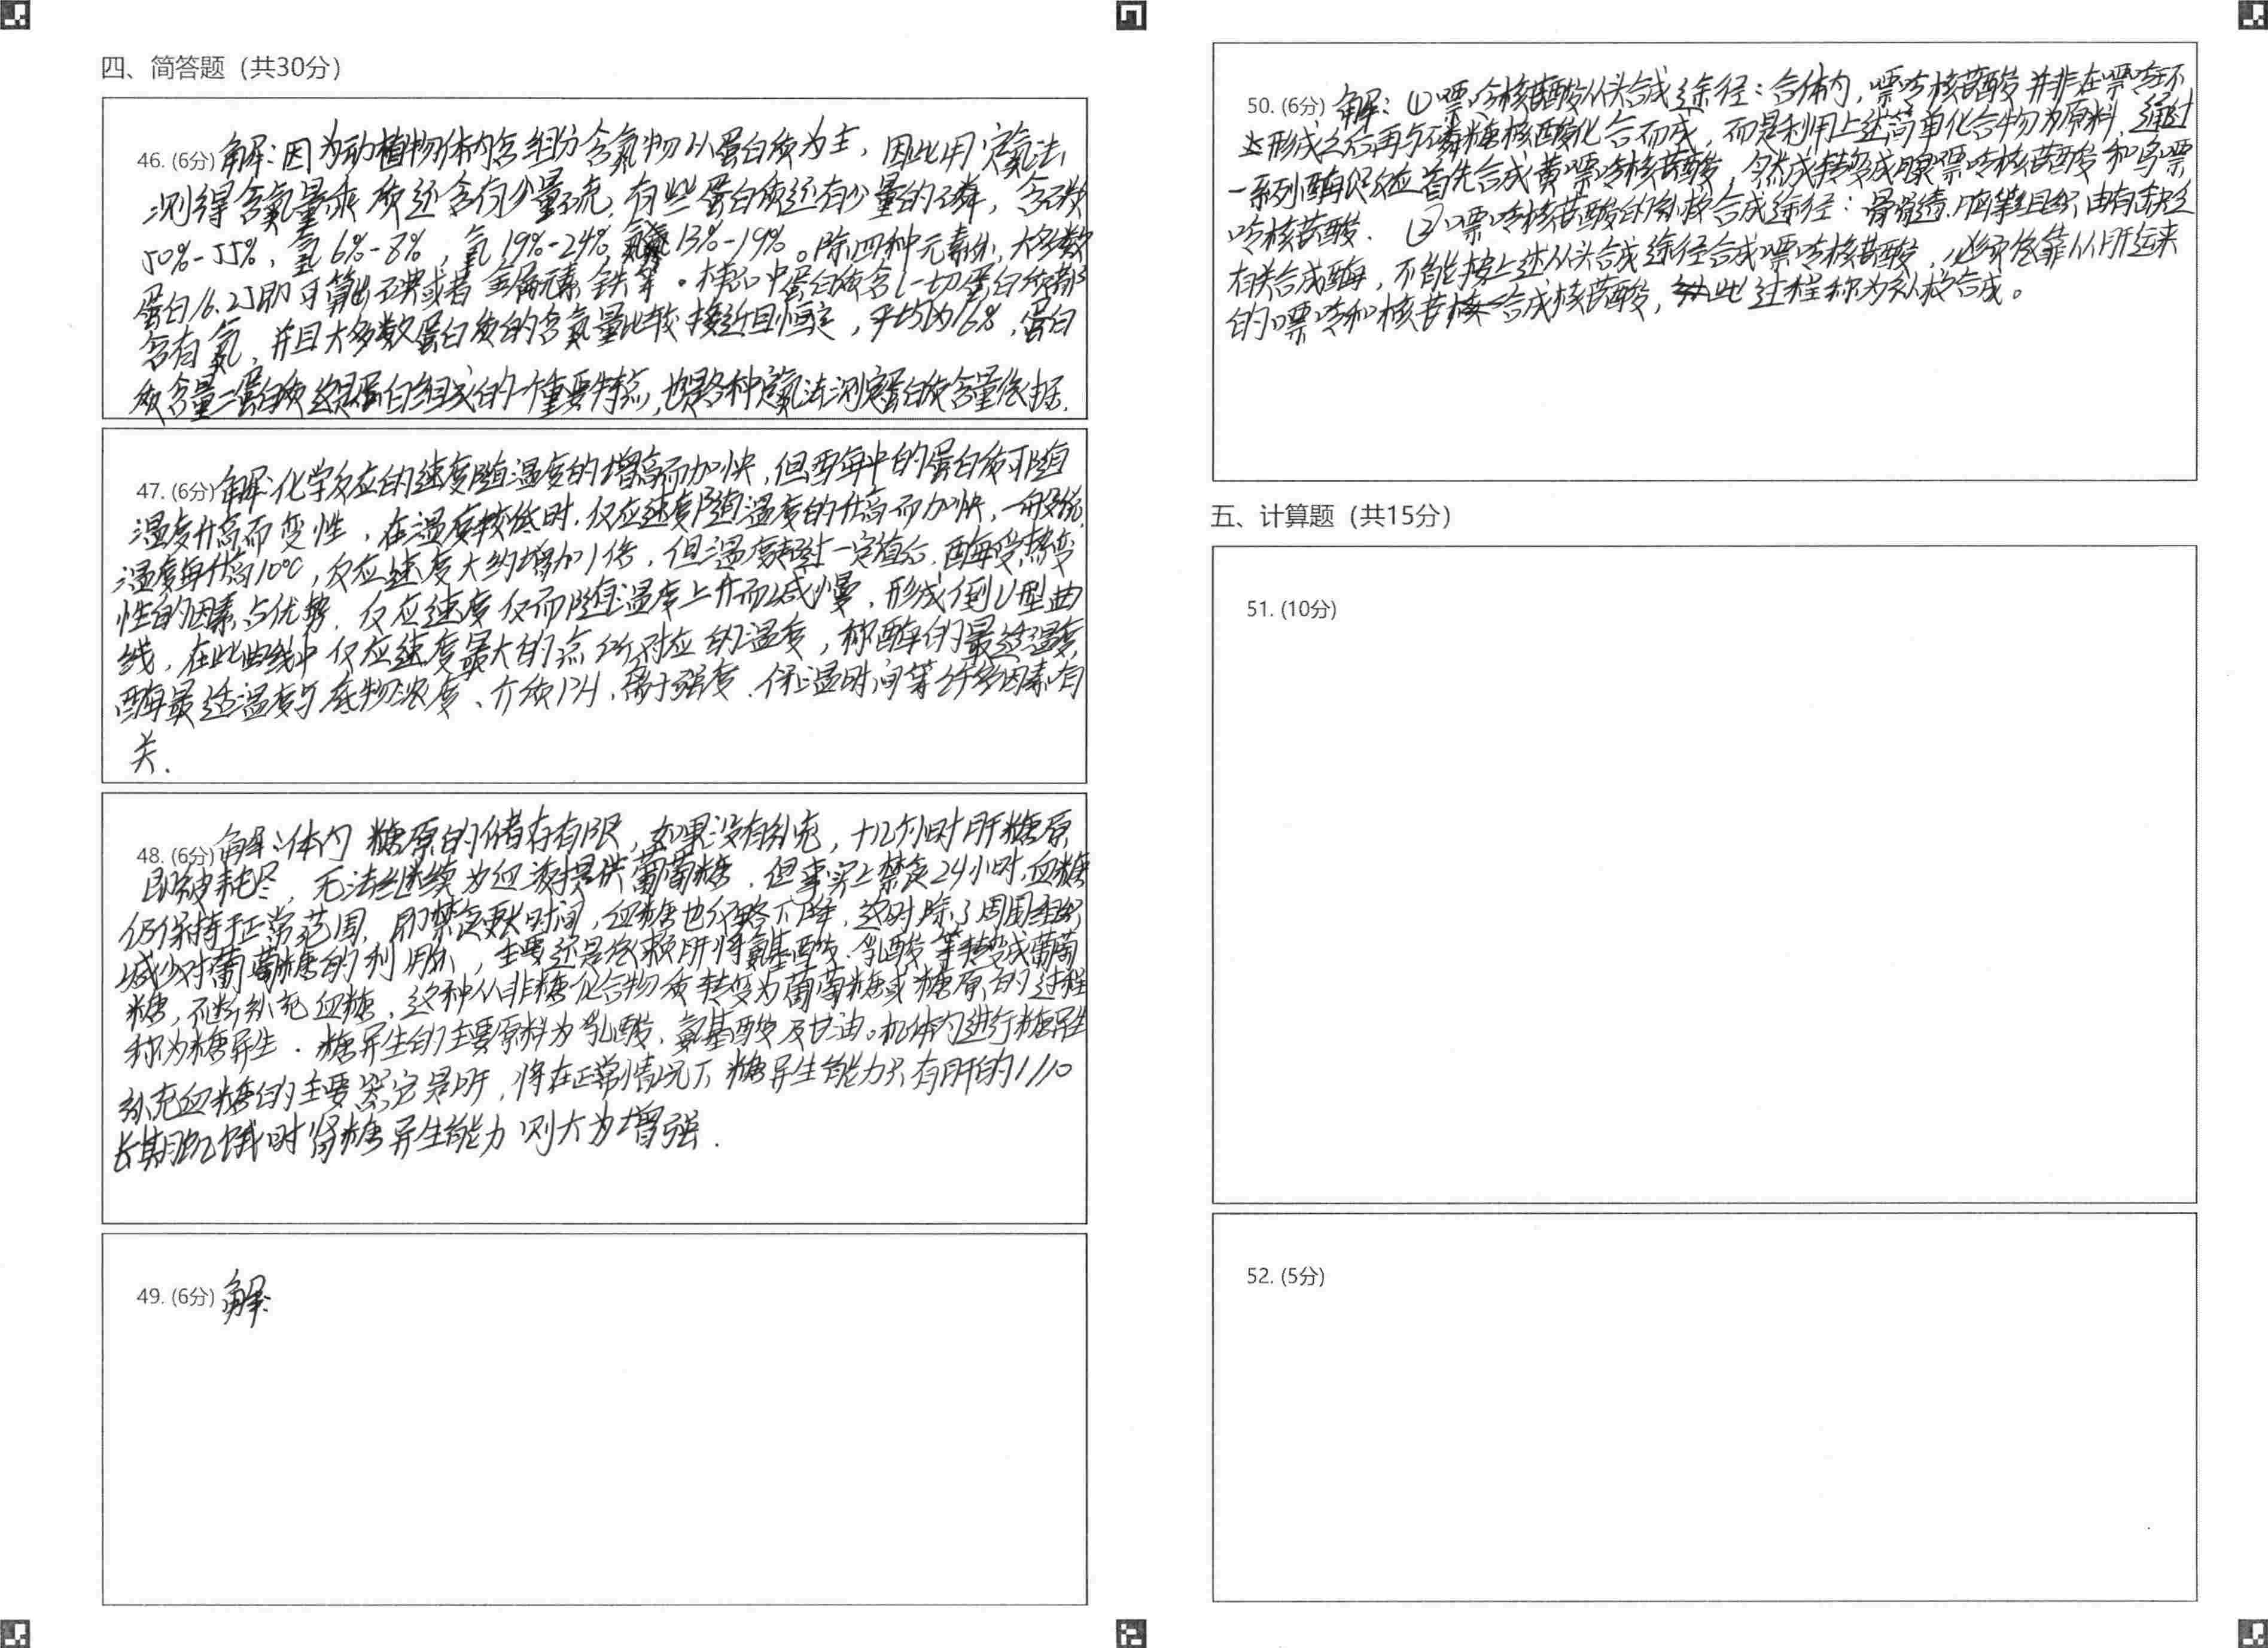 四、简答题（共30分）
46. (6分) 解:因为动植物体内含组分含氮物以蛋白质为主，因此用定氮法
测得含氮量乘 质还含有少量硫，有些蛋白质还有少量的磷，含碳
50%-55%，氢6%-8%，氧19%-24%，氮13%-19%。除四种元素外，大多数
蛋白/6.25即可算出碘或者金属元素铁等。样品中蛋白质含(一切蛋白质都
含有氮，并且大多数蛋白质的含氮量比较接近且恒定，平均为16%，蛋白
质含量=蛋白质 这是蛋白组成的一个重要特点，也是各种定氮法测定蛋白质含量依据.
47. (6分) 解:化学反应的速度随温度的增高而加快，但酶中的蛋白质可随
温度升高而变性，在温度较低时，反应速度随温度的升高而加快，一般说，
温度每升高10℃，反应速度大约增加1倍，但温度超过一定值后，酶受热变
性的因素占优势，反应速度仅而随温度上升而减慢，形成倒U型曲
线，在此曲线中反应速度最大的点所对应的温度，称酶的最适温度
酶最适温度与底物浓度、介质PH，离子强度、保温时间等许多因素有
关.
48. (6分) 解:体内糖原的储存有限，如果没有补充，十几个小时肝糖原
即被耗尽，无法继续为血液提供葡萄糖，但事实上禁食24小时，血糖
仍保持于正常范围，即禁食更长时间，血糖也仅略下降，这时除了周围组织
减少对葡萄糖的利用外，主要还是依赖肝将氨基酸、乳酸等转变成葡萄
糖，不断补充血糖，这种从非糖化合物质转变为葡萄糖或糖原的过程
称为糖异生．糖异生的主要原料为乳酸、氨基酸及甘油。机体内进行糖异生
补充血糖的主要器官是肝，将在正常情况下糖异生能力只有肝的1/10
长期饥饿时肾糖异生能力则大为增强．
49. (6分) 解:
50. (6分) 解：①嘌呤核苷酸从头合成途径：合体内，嘌呤核苷酸并非在嘌呤环
上形成之后再与磷糖核酸化合而成，而是利用上述简单化合物为原料，经过
一系列酶促反应首先合成黄嘌呤核苷酸，然成转变成腺嘌呤核苷酸和鸟嘌
呤核苷酸． ②嘌呤核苷酸的补救合成途径：骨髓、脑等组织由有缺乏
有关合成酶，不能按上述从头合成途径合成嘌呤核苷酸，必须依靠从肝运来
的嘌呤和核苷合成核苷酸，此过程称为补救合成。
五、计算题（共15分）
51. (10分)
52. (5分)